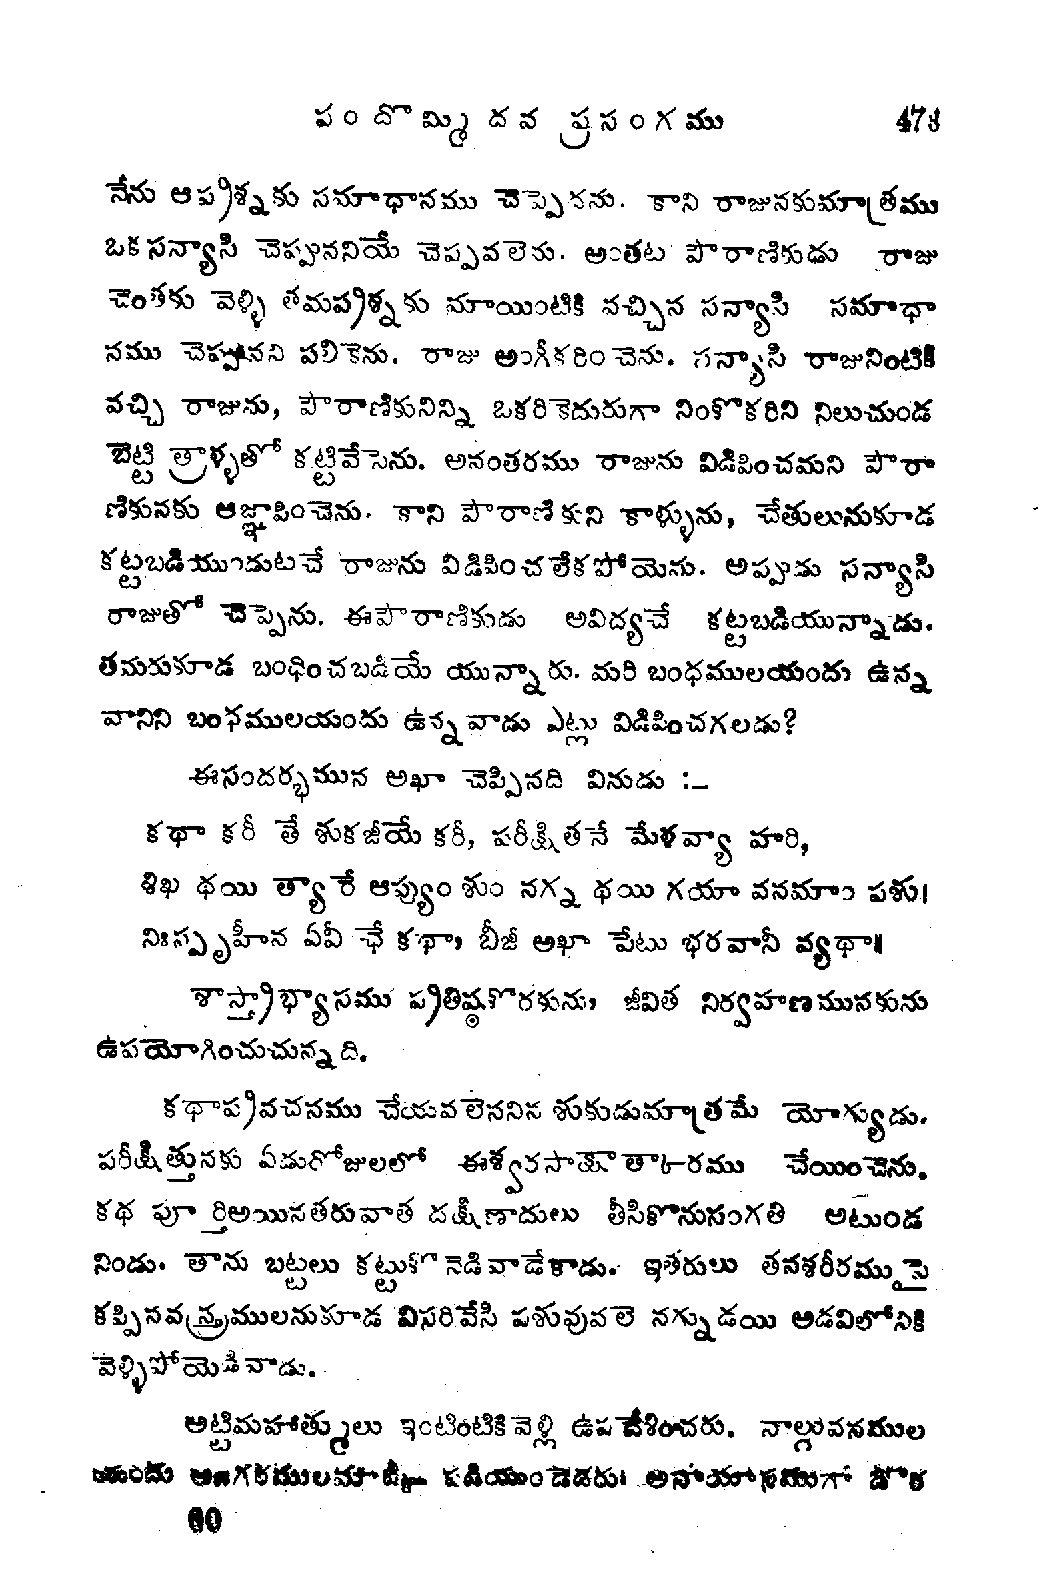 పందొమ్మిదవ ప్రసంగము 473
నేను ఆప్రశ్నకు సమాధానము చెప్పెదను. కాని రాజునకుమాత్రము
ఒకసన్యాసి చెప్పుననియే చెప్పవలెను. అంతట పౌరాణికుడు రాజు
చెంతకు వెళ్ళి తమప్రశ్నకు మాయింటికి వచ్చిన సన్యాసి సమాధా
నము చెప్పునని పలికెను. రాజు అంగీకరించెను. సన్యాసి రాజునింటికి
వచ్చి రాజును, పౌరాణికునిన్ని ఒకరికెదురుగా నింకొకరిని నిలుచుండ
బెట్టి త్రాళ్ళతో కట్టివేసెను. అనంతరము రాజును విడిపించమని పౌరా
ణికునకు ఆజ్ఞాపించెను. కాని పౌరాణికుని కాళ్ళును, చేతులునుకూడ
కట్టబడియుండుటచే రాజును విడిపించలేకపోయెను. అప్పుడు సన్యాసి
రాజుతో చెప్పెను. ఈపౌరాణికుడు అవిద్యచే కట్టబడియున్నాడు.
తమరుకూడ బంధించబడియే యున్నారు. మరి బంధములయందు ఉన్న
వానిని బంధములయందు ఉన్నవాడు ఎట్లు విడిపించగలడు?
ఈసందర్భమున అఖా చెప్పినది వినుడు :–
కథా కరీ తే శుకజీయే కరీ, పరీక్షితనే మేళవ్యా హరి,
శిఖ థయి త్యారే ఆప్యుం శుం నగ్న థయి గయా వనమాం పశు।
నిఃస్పృహీన ఏవీ ఛే కథా, బీజీ అఖా పేటు భరవానీ వ్యథా॥
శాస్త్రాభ్యాసము ప్రతిష్ఠకొరకును, జీవిత నిర్వహణమునకును
ఉపయోగించుచున్నది.
కథాప్రవచనము చేయవలెననిన శుకుడుమాత్రమే యోగ్యుడు.
పరీక్షిత్తునకు ఏడురోజులలో ఈశ్వరసాక్షాత్కారము చేయించెను.
కథ పూర్తిఅయినతరువాత దక్షిణాదులు తీసికొనుసంగతి అటుండ
నిండు. తాను బట్టలు కట్టుకొనెడివాడేకాడు. ఇతరులు తనశరీరముపై
కప్పినవస్త్రములనుకూడ విసరివేసి పశువువలె నగ్నుడయి అడవిలోనికి
వెళ్ళిపోయెడివాడు.
అట్టిమహాత్ములు ఇంటింటికివెళ్లి ఉపదేశించరు. నాల్గువనముల
60